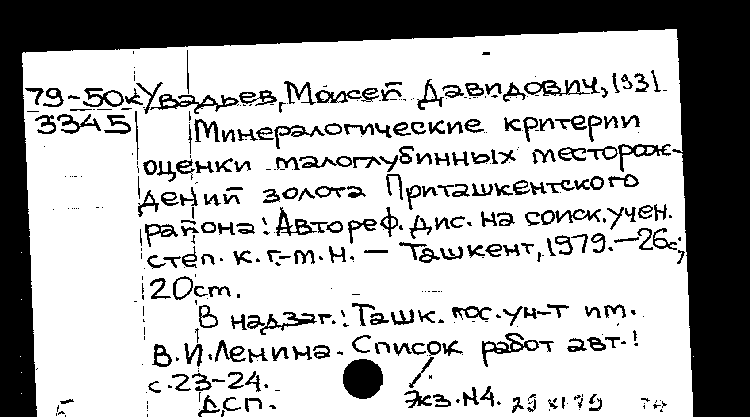 79-50к Увадьев, Моисей Давидович, 1931
3345 Минералогические критерии
оценки малоглубинных месторож-
дений золота Приташкентского
района: Автореф. дис. на соиск. учен.
степ. к. г.-м. н. — Ташкент, 1979. — 26с;
20 cm.
В надзаг.: Ташк. гос. ун-т им.
В. И. Ленина. Список работ авт.:
с. 23-24.
ДСП. Экз. №4. 29 XI 79